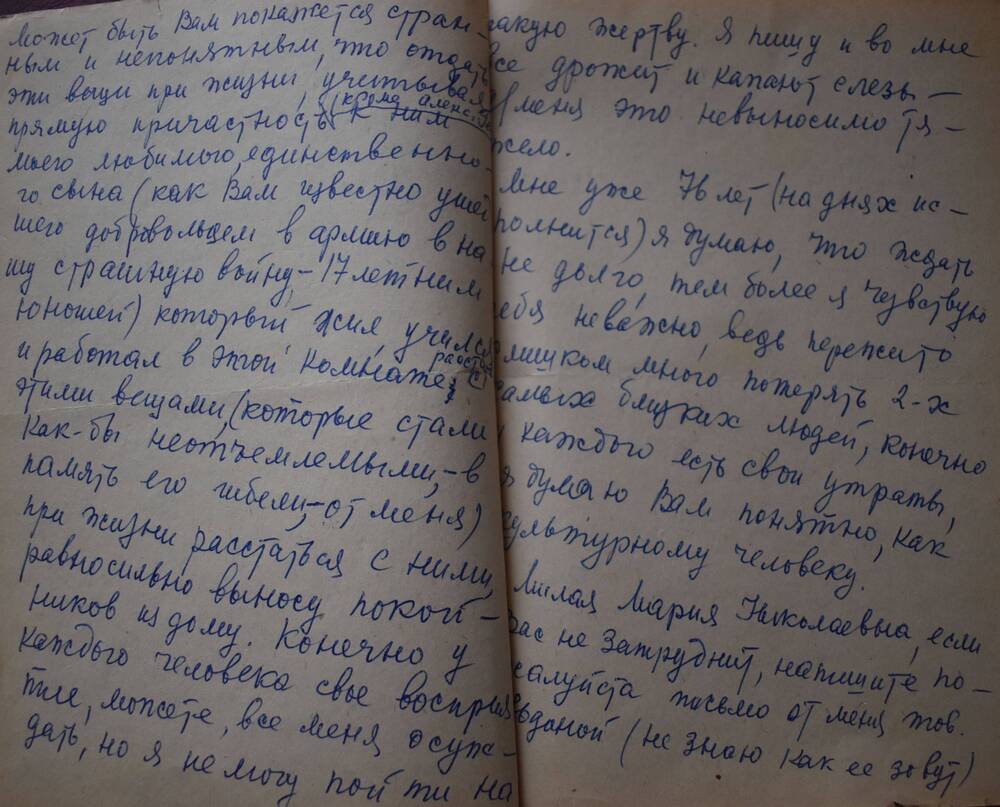 Может быть Вам покажется стран-
ным и непонятным, что отдать
эти вещи при жизни, учитывая
прямую причастность (кроме к ним
моего любимого, единственно-
го сына (как Вам известно ушед
шего добровольцем в армию в на
шу страшную войну,- 17 летним
юношей) который жил, учился
и работал в этой комнате, с
этими вещами, (которые стали
как-бы неотъемлемыми,- в
память его гибели,- от меня)
при жизни расстаться с ними,
равносильно выносу покой-
ников из дому. Конечно у
каждого человека свое восприя
тие, можете, все меня осуж-
дать, но я не могу пойти на
такую жертву. Я пишу и во мне
все дрожит и капают слезы —
меня это невыносимо тя-
жело.
Мне уже 76 лет (на днях ис-
полнится) я думаю, что ждать
не долго, тем более я чувствую
себя неважно, ведь пережито
слишком много потерять 2-х
самых близких людей, конечно
у каждого есть свои утраты,
я думаю Вам понятно, как
культурному человеку.
Милая Мария Николаевна, если
Вас не затруднит, напишите по-
жалуйста письмо от меня тов.
(не знаю как ее зовут)